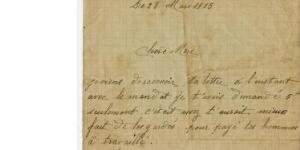 Le 28 Mars 1915
Chère Mère
je viens de recevoir ta lettre à l'instant
avec le mandat je t'avais dimandé 5f
seulement c'est avez t'aurait mieux
fait de les garder pour payé tes hommes
à travaille.